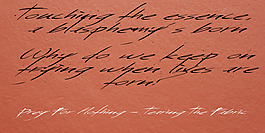 Touching the essence,
a blasphemy's born
Why do we keep on
trying when lives are
torn?
Pray For Nothing – Tearing The Fabric